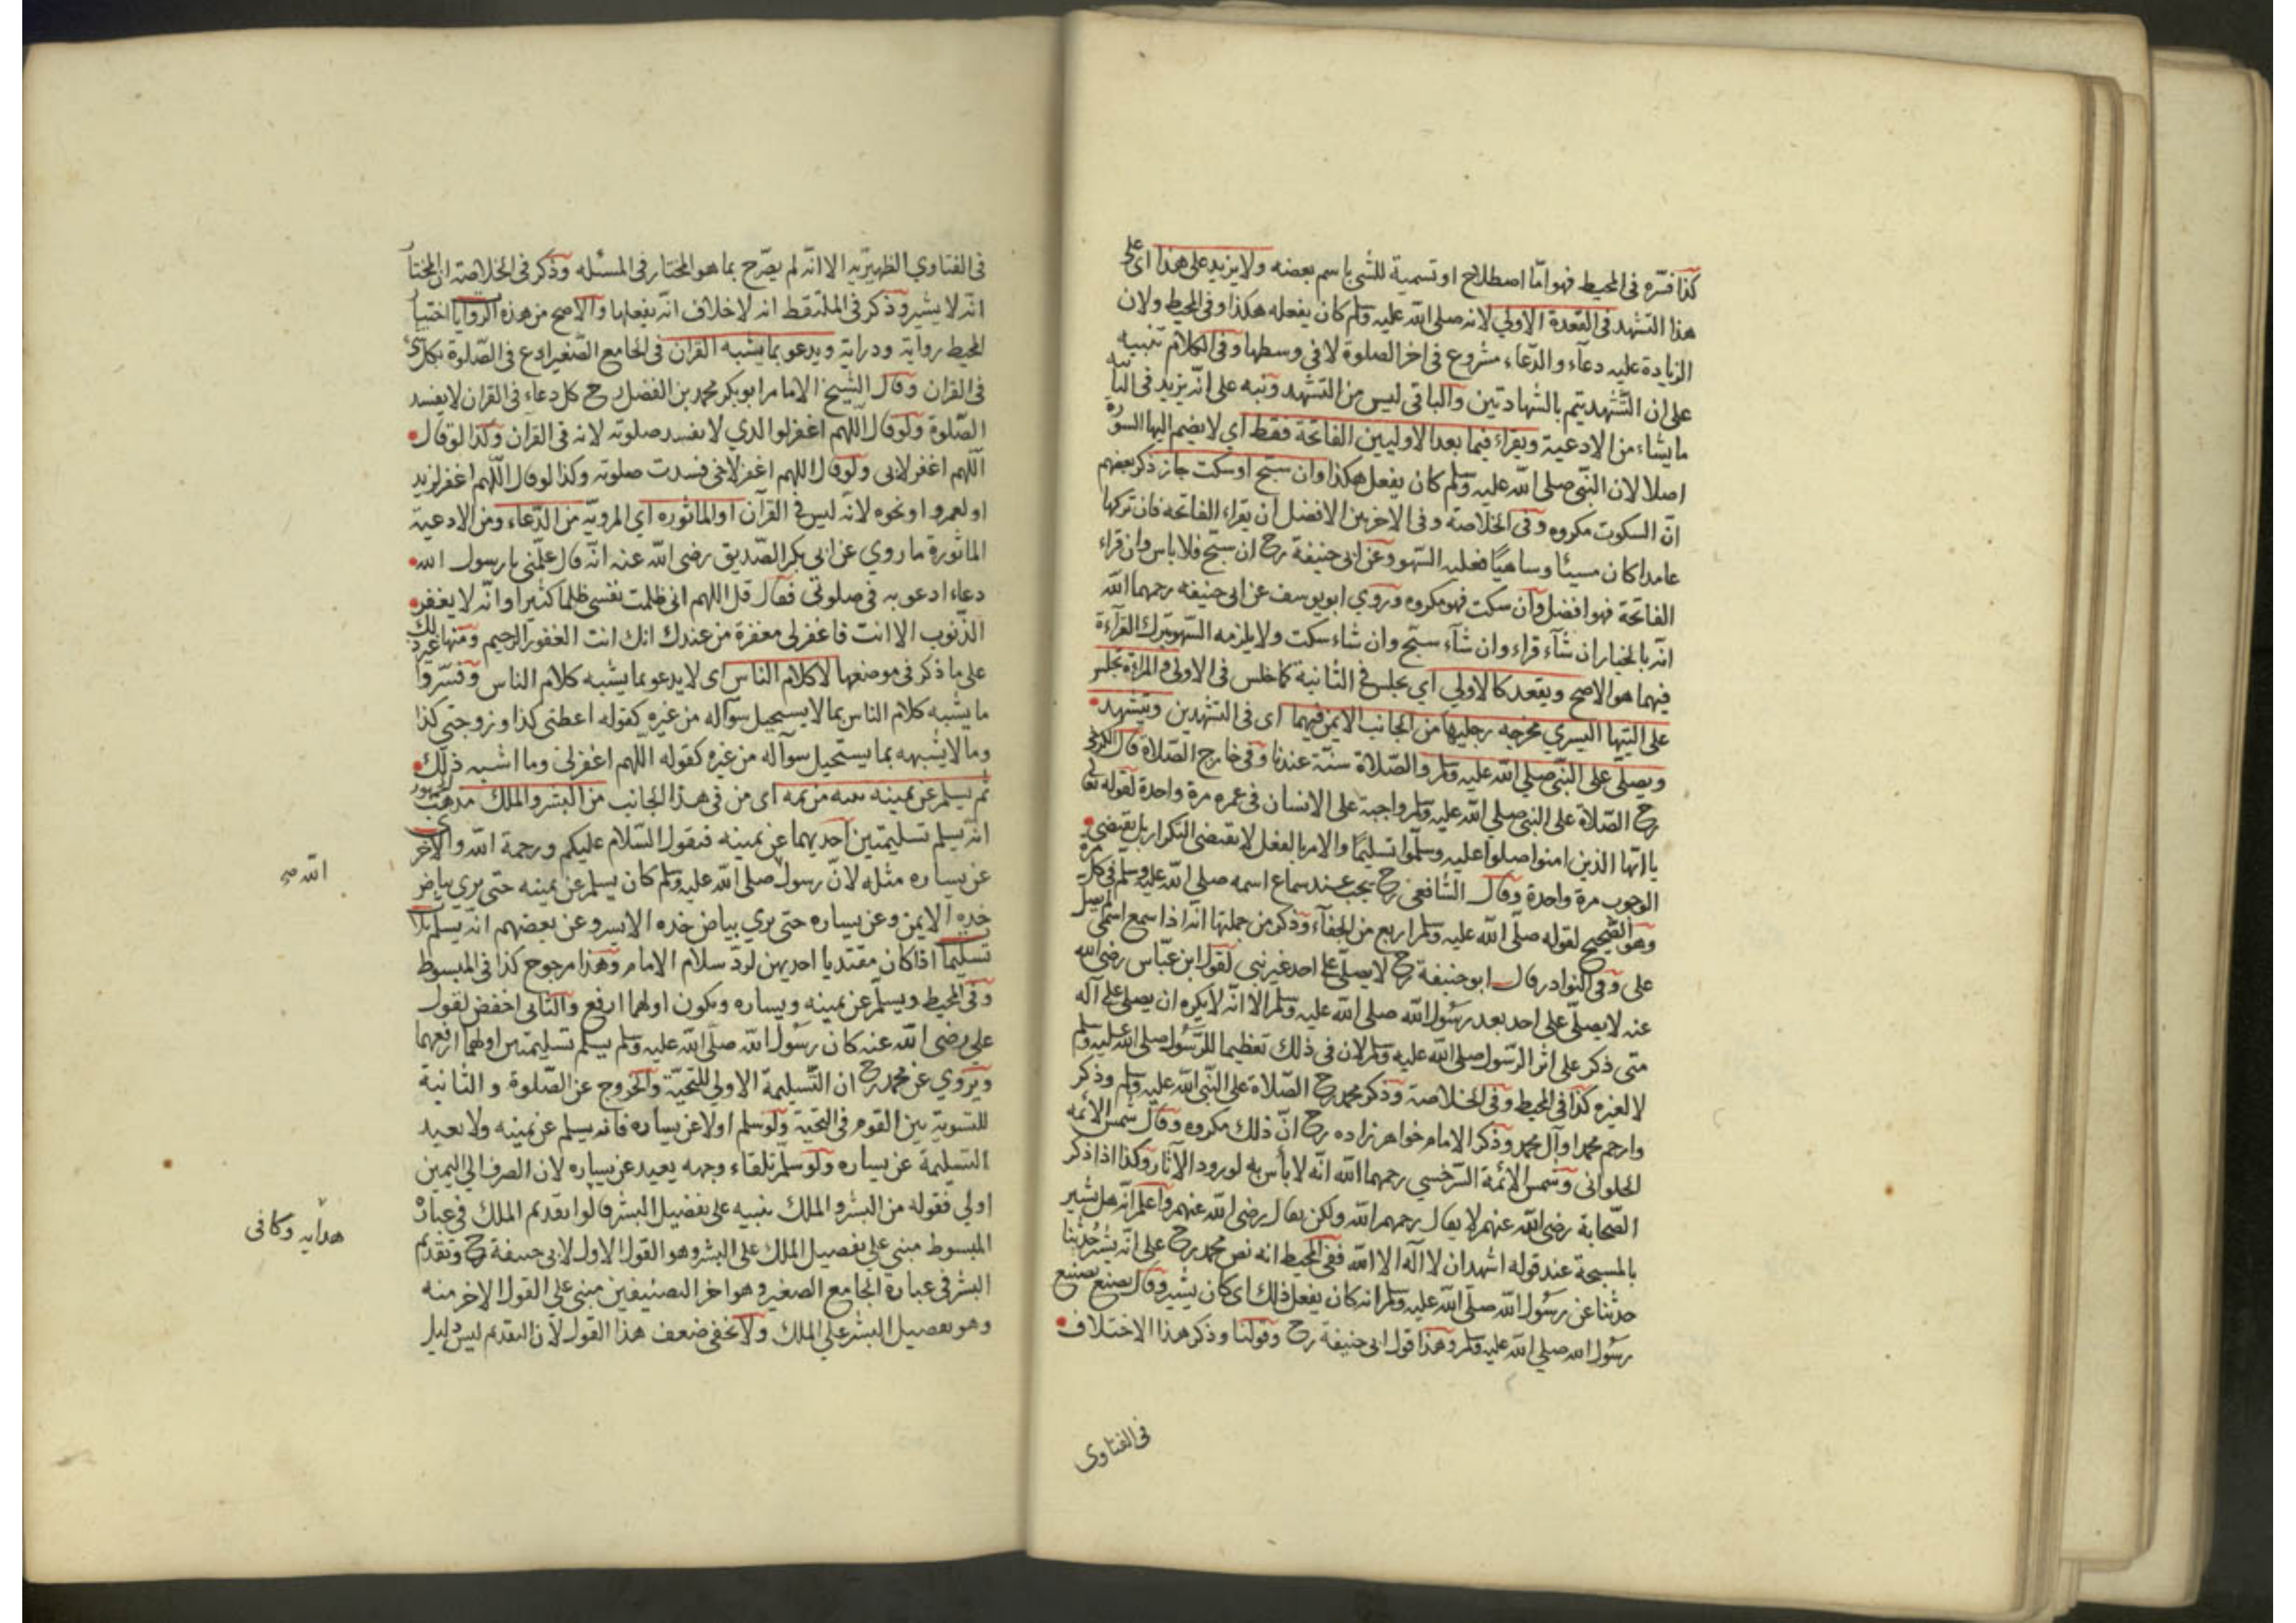 كذا فسّره في المحيط فهو امّا اصطلاح او تسمية للشئ باسم بعضه ولا يزيد على هذا اى على
هذا التشهد فى القعدة الاولي لانه صلى الله عليه وسلم كان يفعله هكذا وفى المحيط ولان
الزيادة عليه دعآء والدّعاء مشروع فى اخر الصلوة لا فى وسطها وفى الكلام تنبيه
على ان التّشهد يتم بالشهادتين والباقى ليس من التشهد ونبه على انّه يزيد فى الثانيه
ما يشاء من الادعية ويقراء فيما بعد الاوليين الفاتحة فقط اى لا يضم اليها السورة
اصلا لان النّبى صلى الله عليه وسلم كان يفعل هكذا وان سبّح او سكت جاز ذكر بعضهم
انّ السكوت مكروه وفى الخلاصة وفى الاخريين الافضل ان يقراء الفاتحة فان تركها
عامدا كان مسيئا وساهيًا فعليه السّهو وعن ابى حنيفة رح ان سبّح فلا باس وان قراء
الفاتحة فهو افضل وان سكت فهو مكروه وروي ابو يوسف عن ابى حنيفه رحمهما الله
انّه بالخيار ان شآء قراء وان شآء سبّح وان شاء سكت ولا يلزمه السّهو بترك القرآءة
فيهما هو الاصح ويقعد كالاولي اي يجلس فى الثانية كما جلس فى الاولى والمراة تجلس
على اليتها اليسري مخرجه رجليها من الجانب الايمن فيهما اى فى التشهدين ويتشهد
ويصلّى على النّبى صلى الله عليه وسلم والصّلاة سنّة عندنا وفى خارج الصّلاة قال الكرخى
رح الصّلاة على النبى صلي الله عليه وسلم واجبة على الانسان فى عمره مرة واحدة لقوله تعالى
يا ايّها الذين امنوا صلوا عليه وسلّموا تسليمًا والامر بالفعل لا يقتضى التكرار بل يقتضى
الوجوب مرة واحدة وقال الشّافعى رح يجب عند سماع اسمه صلي الله عليه وسلم فى كل مرة
وهو الصّحيح لقوله صلّى الله عليه وسلم اربع من الجفآء وذكر من جملتها انّه اذا سمع اسمى لم يصل
على وفى النوادر قال ابو حنيفة رح لا يصلّى على احد غير نبى لقول ابن عبّاس رضى الله
عنه لا يصلّى على احد بعد رسول الله صلى الله عليه وسلم الا انّه لا يكره ان يصلى على آله
متى ذكر على اثر الرّسول صلى الله عليه وسلم لان فى ذلك تعظيما للرّسول صلى الله عليه وسلم
لا لغيره كذا فى المحيط وفى الخلاصة وذكر محمد رح الصّلاة على النّبى الله عليه وسلم وذكر
وارحم محمدا وآل محمد وذكر الامام خواهر زاده رح انّ ذلك مكروه وقال شمس الائمه
الحلوانى وشمس الائمّة السّرخسي رحمهما الله انّه لا بأس به لورود الآثار وكذا اذا ذكر
الصّحابة رضى الله عنهم لا يقال رحمهم الله ولكن يقال رضى الله عنهم واعلم انّه هل يشير
بالمسبحة عند قوله اشهد ان لا اله الا الله ففى المحيط انه نص محمد رح على انّه يشير حدثنا
حدثنا عن رسول الله صلّى الله عليه وسلم انه كان يفعل ذلك اى كان يشير وقال يصنع بصنيع
رسول الله صلى الله عليه وسلم وهذا قول ابى حنيفة رح وقولنا وذكر هذا الاختلاف
فى الفتاوى
فى الفتاوي الظهيريّه الا انّه لم يصّرح بما هو المختار فى المسئله وذكر فى الخلاصة ان المختار
انّه لا يشير وذكر فى الملتقط انه لا خلاف انّه يفعلها والاصح من هذه الروايا اختيار
المحيط رواية ودراية ويدعو بما يشبه القران فى الجامع الصّغير ادع فى الصّلوة بكل شئ
فى القران وقال الشّيخ الامام ابو بكر محمد بن الفضل رح كل دعاء فى القران لا يفسد
الصّلوة ولو قال اللّهم اغفر لوالدي لا يفسد صلوته لانه فى القرآن وكذا لو قال
اللّهم اغفر لابى ولو قال اللهم اغفر لاخى فسدت صلوته وكذا لو قال اللّهم اغفر لزيد
او لعمرو او نحوه لانّه ليس فى القرآن او الماثوره اي المرويّه من الدّعاء ومن الادعية
الماثورة ما روي عن ابى بكر الصّديق رضى الله عنه انّه قال علّمنى يا رسول الله
دعاء ادعو به فى صلوتى فقال قل اللهم انى ظلمت نفسى ظلما كثيرا وانّه لا يغفر
الذّنوب الا انت فاغفر لى مغفرة من عندك انك انت الغفور الرحيم ومنها غير ذلك
على ما ذكر فى موضعها لا كلام الناس اى لا يدعو بما يشبه كلام الناس وفسّروا
ما يشبه كلام الناس بما لا يستحيل سوآله من غيره كقوله اعطنى كذا وزوجتى كذا
وما لا يشبهه بما يستحيل سوآله من غيره كقوله اللّهم اغفرلى وما اشبه ذلك
ثم يسلم عن يمينه بنيه من ثمه اى من فى هذا الجانب من البشر والملك مذهب الجمهور
انه يسلم تسليمتين احديهما عن يمينه فيقول السّلام عليكم ورحمة الله والاخرى
عن يساره مثله لانّ رسول صلى الله عليه وسلم كان يسلم عن يمينه حتى يري بياض
خده الايمن وعن يساره حتى يري بياض خده الايسر وعن بعضهم انّه يسلم ثلاث
تسليما اذا كان مقتديا احديهن لردّ سلام الامام وهذا مرجوح كذا فى المبسوط
وفى المحيط ويسلّم عن يمينه ويساره ويكون اولهما ارفع والثانى اخفض لقول
علي رضى الله عنه كان رسول الله صلّى الله عليه وسلم يسلم تسليمتين اولهما ارفعهما
ويروي عن محمد رح ان التّسليمة الاولي للتحيّة والخروج عن الصّلوة والثانية
للتسوية بين القوم فى التحية ولو سلم اولا عن يساره فانه يسلم عن يمينه ولا يعيد
التسليمة عن يساره ولو سلّم تلقاء وجهه يعيد عن يساره لان الصرف الى اليمين
اولي فقوله من البشر والملك تنبيه على تفضيل البشر قالوا تقديم الملك فى عبارة
المبسوط مبنى على تفضيل الملك على البشر وهو القول الاول لابى حنيفة رح وتقديم
البشر فى عبارة الجامع الصغير وهو اخر التصنيفين مبنى على القول الاخر منه
وهو تفضيل البشر علي الملك ولا يخفى ضعف هذا القول لان التقديم ليس دليل
الله
هدايه وكافى